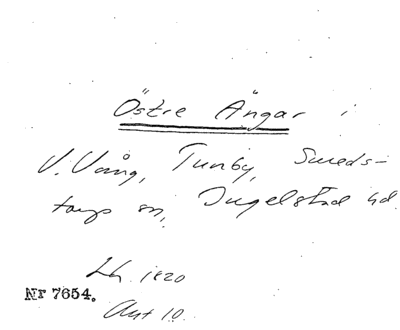 Östre Ängar i
V. Vång, Tunby, Smeds-
torps sn, Ingelstad hd.
Lh. 1820
Nr 7654.
Akt 10.